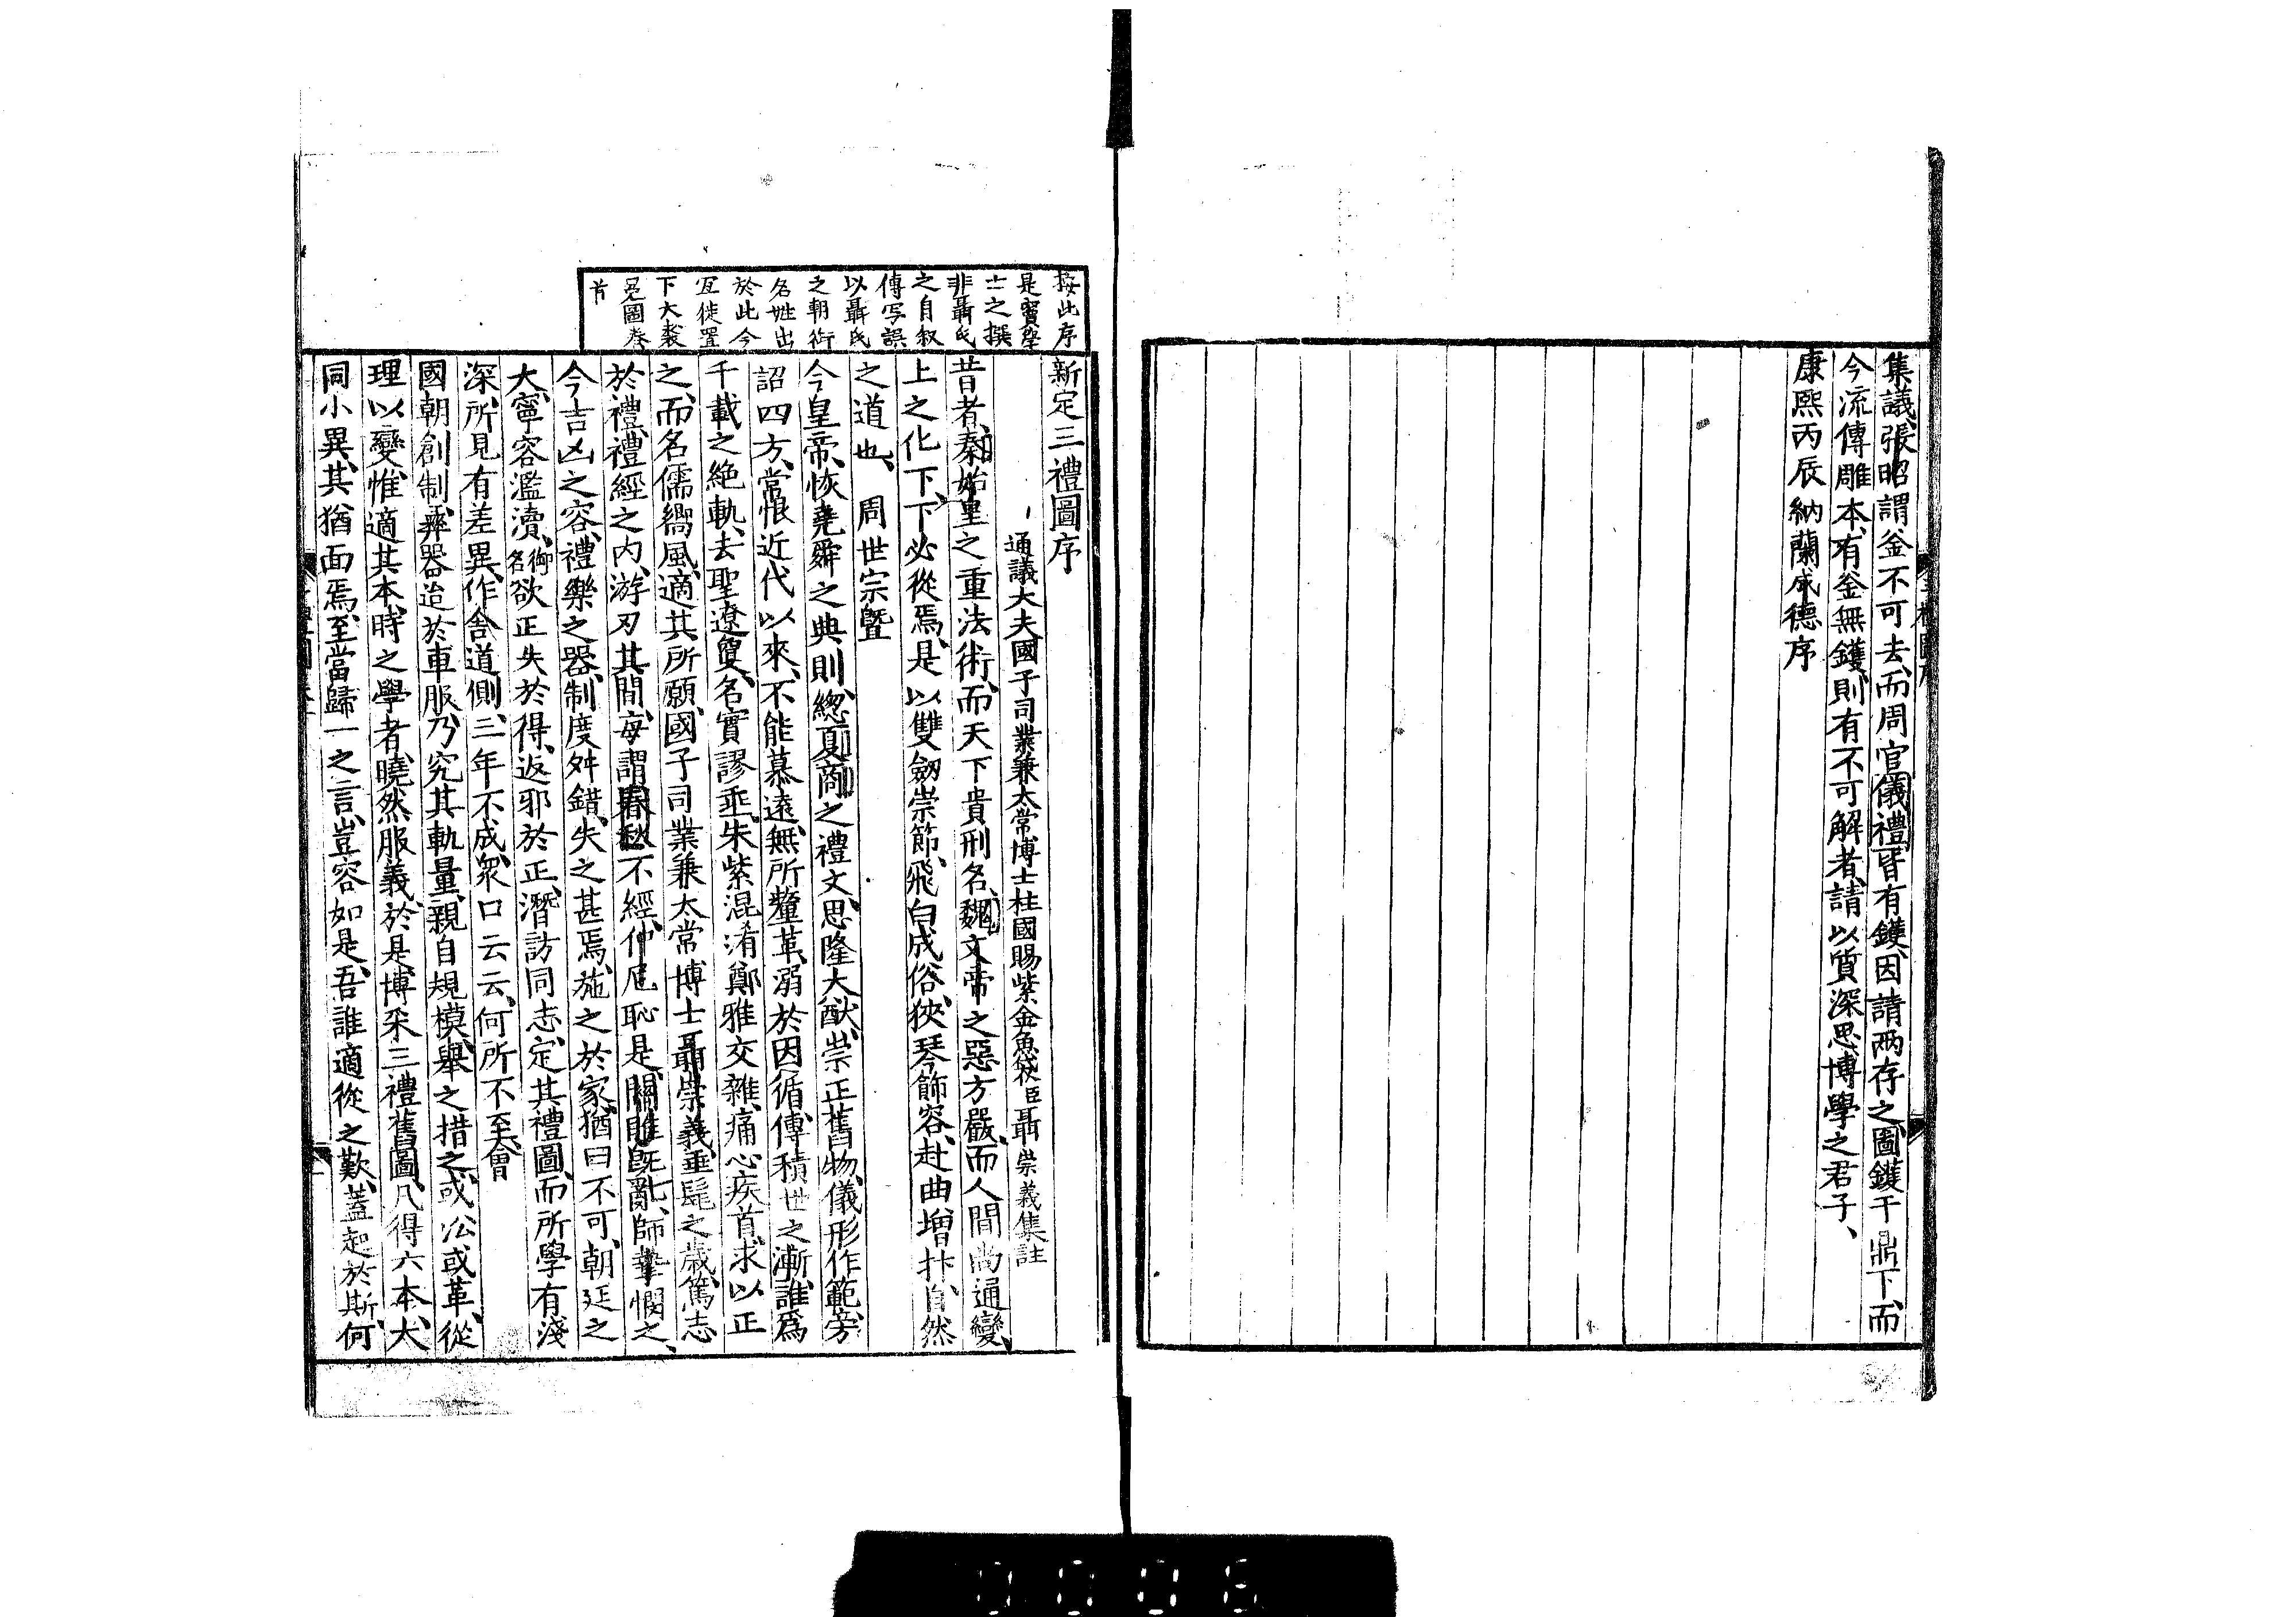 集議、張昭謂釡不可去、而周官儀禮皆有鑊、因請兩存之、圖鑊于鼎下、而
今流傳雕本、有釡無鑊、則有不可解者、請以質深思博學之君子、
康熙丙辰納蘭成德序
按此序
是竇學
士之撰
非聶氏
之自叙
傳写誤
以聶氏
之朝銜
名姓出
於此今
宜徙置
下大裘
冕圖卷
首
新定三禮圖序
通議大夫國子司業兼太常博士柱國賜紫金魚袋臣聶崇義集註
昔者、秦始皇之重法術、而天下貴刑名、魏文帝之惡方嚴、而人間尚通變、
上之化下、下必從焉、是以雙劒崇節、飛白成俗、狹琴飾容、赴曲增抃、自然
之道也、 周世宗曁
今皇帝、恢堯舜之典則、緫夏商之禮文、思隆大猷、崇正舊物、儀形作範、旁
詔四方、常恨近代以來、不能慕遠、無所釐革、溺於因循、傳積世之漸、誰爲
千載之絶軌、去聖遼夐、名實謬乖、朱紫混淆、鄭雅交雜、痛心疾首、求以正
之、而名儒嚮風、適其所願、國子司業兼太常博士聶崇義、垂髦之歲、篤志
於禮、禮經之内、游刃其間、每謂春秋不經、仲尼恥是、關雎旣亂、師摯憫之、
今吉凶之容、禮樂之器、制度舛錯、失之甚焉、施之於家、猶曰不可、朝廷之
大、寧容濫瀆、御名欲正失於得、返邪於正、潛訪同志、定其禮圖、而所學有淺
深、所見有差異、作舎道側、三年不成、衆口云云、何所不至、會
國朝創制、彝器迨於車服、乃究其軌量、親自規模、舉之措之、或㳂或革、從
理以變、惟適其本、時之學者、曉然服義、於是、博采三禮舊圖、凡得六本、大
同小異、其猶面焉、至當歸一之言、豈容如是、吾誰適從之歎、蓋起於斯、何